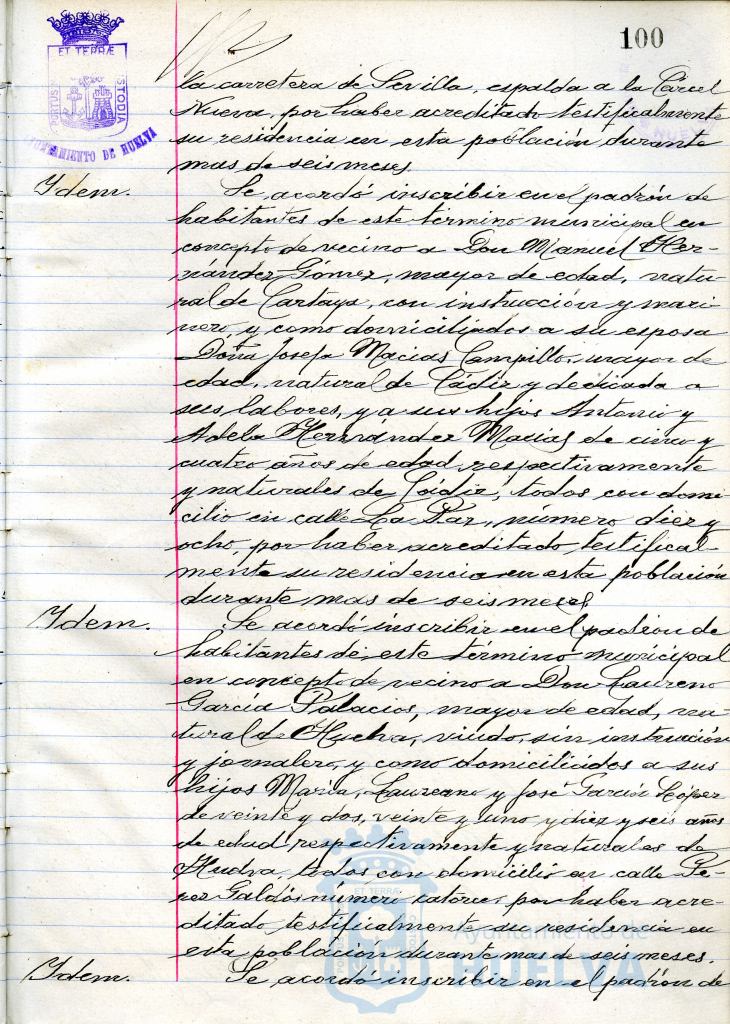 100
ET TERRÆ
PORTUS
CUSTODIA
AYUNTAMIENTO DE HUELVA
la carretera de Sevilla, espalda a la Cárcel
Nueva, por haber acreditado testificalmente
su residencia en esta población durante
mas de seis meses.
Ydem.
Se acordó inscribir en el padrón de
habitantes de este término municipal en
concepto de vecino a Don Manuel Her-
nández Gómez, mayor de edad, natu-
ral de Cartaya, con instrucción y mari-
nero, y como domiciliados a su esposa
Doña Josefa Macias Campillo, mayor de
edad, natural de Cádiz y dedicada a
sus labores, y a sus hijos Antonio y
Adela Hernández Macias de cinco y
cuatro años de edad respectivamente
y naturales de Cádiz, todos con domi-
cilio en calle La Paz, número diez y
ocho, por haber acreditado testifical-
mente su residencia en esta población
durante mas de seis meses.
Ydem.
Se acordó inscribir en el padrón de
habitantes de este término municipal
en concepto de vecino a Don Laureno
García Palacios, mayor de edad, na-
tural de Huelva, viudo, sin instrucción
y jornalero, y como domiciliados a sus
hijos María, Laureano y José García López
de veinte y dos, veinte y uno y diez y seis años
de edad respectivamente y naturales de
Huelva, todos con domicilio en calle Pe-
rez Galdós número catorce, por haber acre-
ditado testificalmente su residencia en
esta población durante mas de seis meses.
Ydem.
Se acordó inscribir en el padrón de
ET TERRÆ
Ayuntamiento de
HUELVA